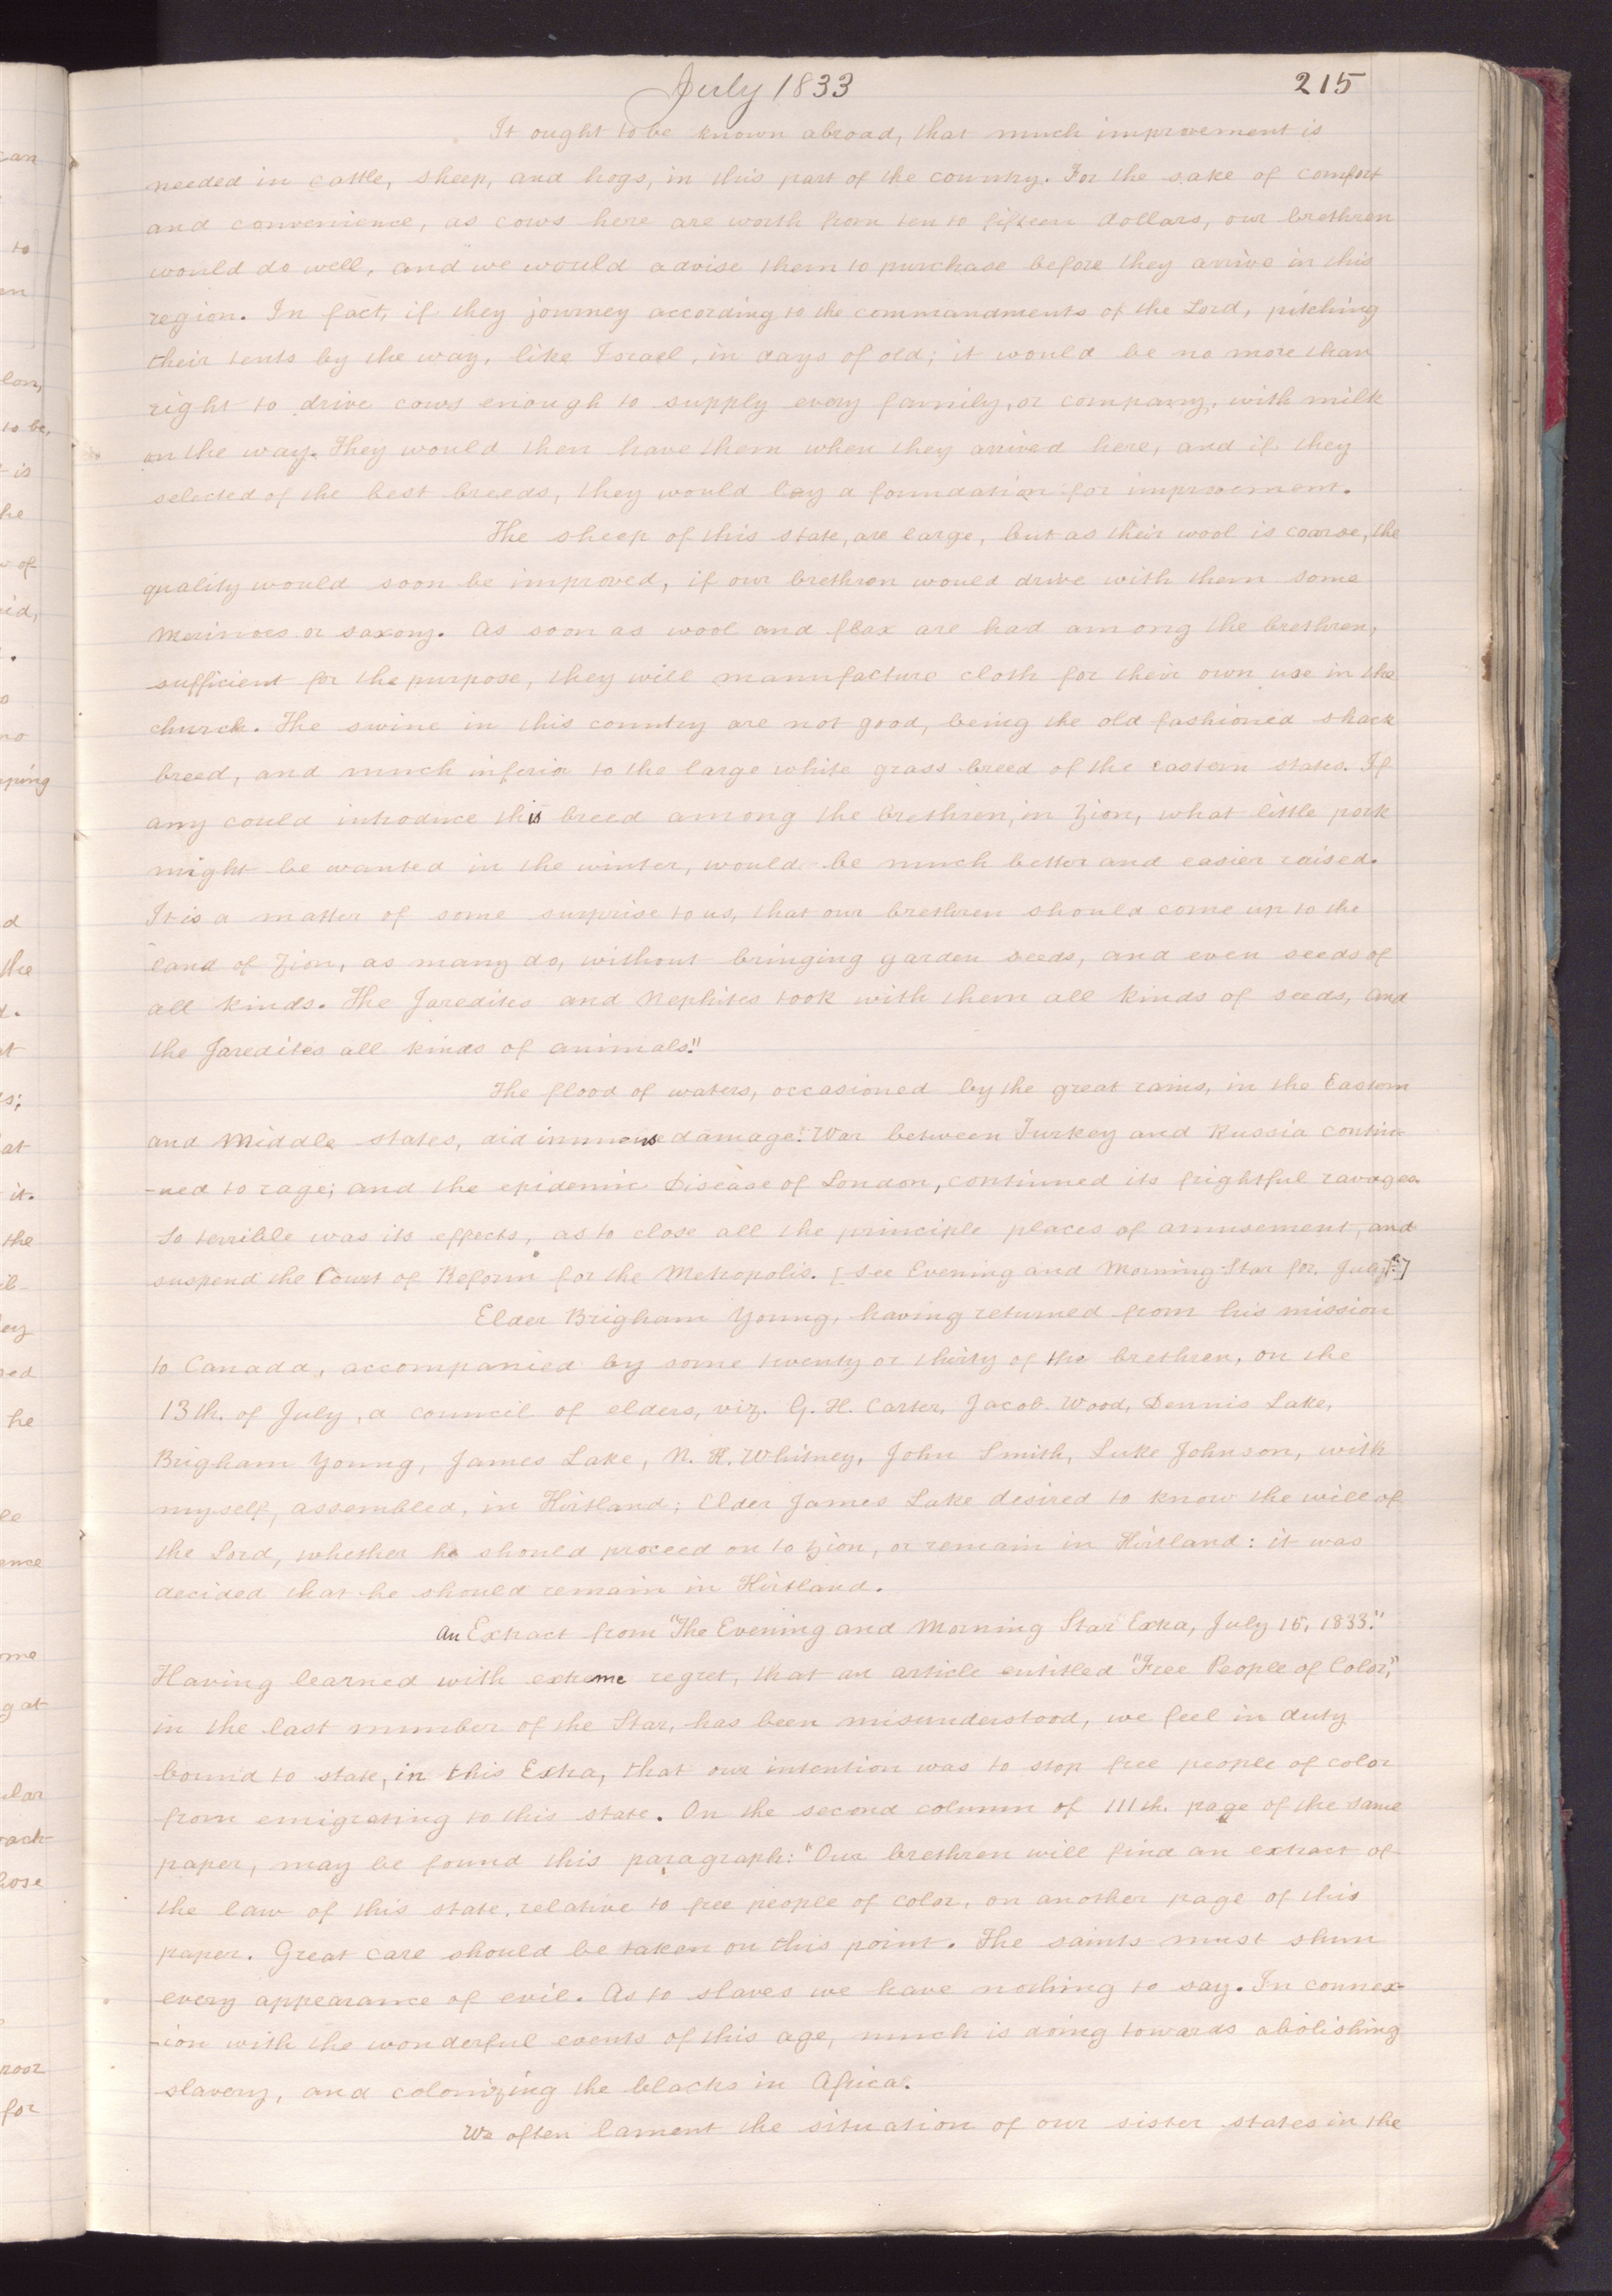 July 1833
215
It ought to be known abroad, that much improvement is
needed in cattle, sheep, and hogs, in this part of the country. For the sake of comfort
and convenience, as cows here are worth from ten to fifteen dollars, our brethren
would do well, and we would advise them to purchase before they arrive in this
region. In fact, if they journey according to the commandments of the Lord, pitching
their tents by the way, like Israel, in days of old; it would be no more than
right to drive cows enough to supply every family, or company, with milk
on the way. They would then have them when they arrived here, and if they
selected of the best breeds, they would lay a foundation for improvement.
The sheep of this state, are large, but as their wool is coarse, the
quality would soon be improved, if our brethren would drive with them some
Merinoes or saxony. As soon as wool and flax are had among the brethren,
sufficient for the purpose, they will manufacture cloth for their own use in the
church. The swine in this country are not good, being the old fashioned shack
breed, and much inferior to the large white grass breed of the eastern states. If
any could introduce this breed among the brethren, in Zion, what little pork
might be wanted in the winter, would be much better and easier raised.
It is a matter of some surprise to us, that our brethren should come up to the
land of Zion, as many do, without bringing garden seeds, and even seeds of
all kinds. The Jaredites and Nephites took with them all kinds of seeds, and
the Jaredites all kinds of animals."
The flood of waters, occasioned by the great rains, in the Eastern
and Middle states, did immense damage. War between Turkey and Russia contin-
-ued to rage; and the epidemic Disease of London, continued its frightful ravages.
So terrible was its effects, as to close all the principle places of amusement, and
suspend the Court of Reform for the Metropolis. [See Evening and Morning Star for July.]
Elder Brigham Young, having returned from his mission
to Canada, accompanied by some twenty or thirty of the brethren, on the
13th. of July, a council of elders, viz. G. H. Carter, Jacob Wood, Dennis Lake,
Brigham Young, James Lake, N. K. Whitney, John Smith, Luke Johnson, with
myself, assembled, in Kirtland; Elder James Lake desired to know the will of
the Lord, whether he should proceed on to Zion, or remain in Kirtland: it was
decided that he should remain in Kirtland.
An Extract from "The Evening and Morning Star Extra, July 16, 1833."
Having learned with extreme regret, that an article entitled "Free People of Color,"
in the last number of the Star, has been misunderstood, we feel in duty
bound to state, in this Extra, that our intention was to stop free people of color
from emigrating to this state. On the second column of 111th. page of the same
paper, may be found this paragraph: "Our brethren will find an extract of
the law of this state, relative to free people of color, on another page of this
paper. Great care should be taken on this point. The saints must shun
every appearance of evil. As to slaves we have nothing to say. In connex-
-ion with the wonderful events of this age, much is doing towards abolishing
slavery, and colonizing the blacks in Africa.
We often lament the situation of our sister states in the